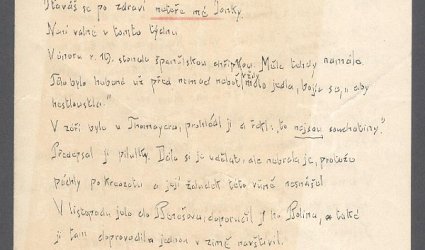 Ptáváš se po zdraví mateře mé Janky.
Není valné v tomto týdnu
V únoru r. 19. stonala španělskou chřipkou. Měla tehdy namále.
Tělo bylo hubené už před nemocí neboť vždy málo jedla, bojíc se, „aby
nestloustla."
V září byla u Thomayera, prohlédl ji a řekl: „to nejsou souchotiny."
Předepsal jí pilulky. Dala si je udělati, ale nebrala je, protože
páchly po kreozotu a její žaludek této vůně nesnášel
V listopadu jela do Benešova, doporučil do Polína, a také
ji tam doprovodila jednou v zimě navštívil.